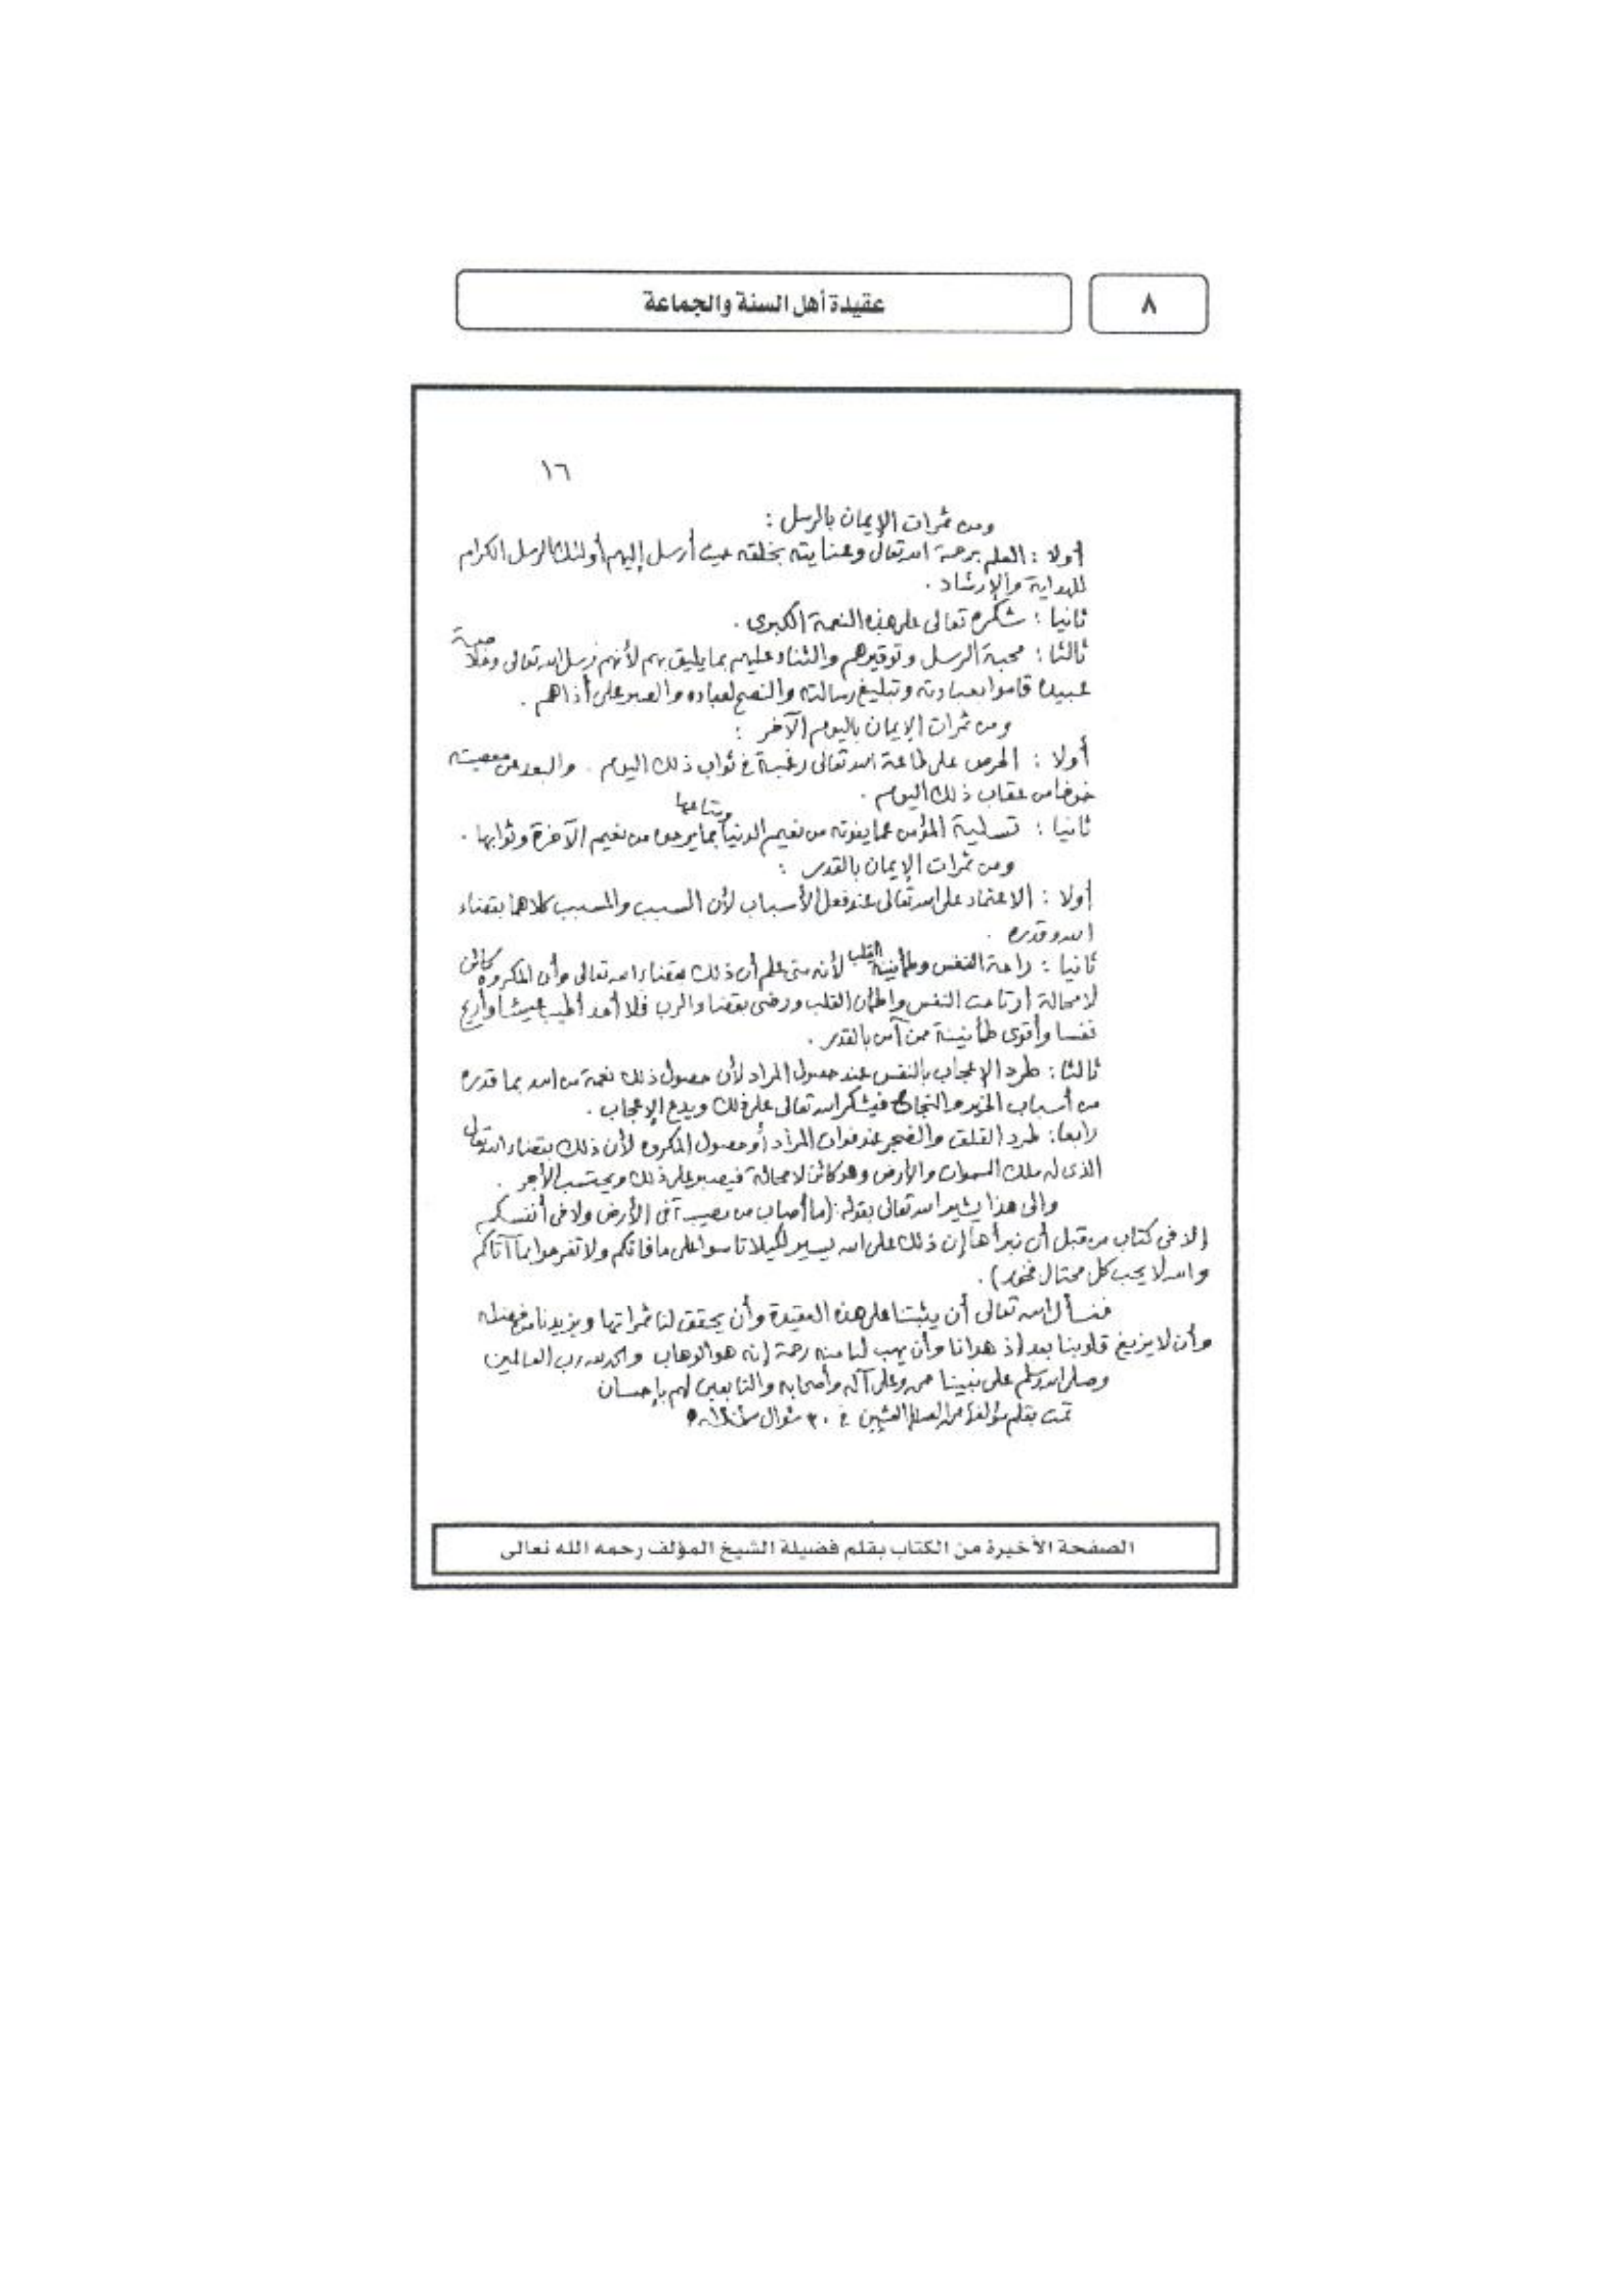 ٨
عقيدة أهل السنة والجماعة
١٦
ومن ثمرات الإيمان بالرسل :
أولا : العلم برحمة الله تعالى وعنايته بخلقه حيث أرسل إليهم أولئك الرسل الكرام
للهداية والإرشاد .
ثانيا : شكره تعالى على هذه النعمة الكبرى .
ثالثا : محبة الرسل وتوقيرهم والثناء عليهم بما يليق بهم لأنهم رسل الله تعالى وخلاصة
عبيده قاموا بعبادته وتبليغ رسالته والنصح لعباده والصبر على أذاهم .
ومن ثمرات الإيمان باليوم الآخر :
أولا : الحرص على طاعة الله تعالى رغبة في ثواب ذلك اليوم . والبعد عن معصيته
خوفا من عقاب ذلك اليوم .
ثانيا : تسلية المؤمن عما يفوته من نعيم الدنيا ومتاعها بما يرجوه من نعيم الآخرة وثوابها .
ومن ثمرات الإيمان بالقدر :
أولا : الاعتماد على الله تعالى عند فعل الأسباب لأن السبب والمسبب كلاهما بقضاء
الله وقدره .
ثانيا : راحة النفس وطمأنينة القلب لأنه متى علم أن ذلك بقضاء الله تعالى وأن المكروه كائن
لا محالة ارتاحت النفس واطمأن القلب ورضي بقضاء الرب فلا أحد أطيب عيشا وأريح
نفسا وأقوى طمأنينة ممن آمن بالقدر .
ثالثا : طرد الإعجاب بالنفس عند حصول المراد لأن حصول ذلك نعمة من الله بما قدره
من أسباب الخير والنجاح فيشكر الله تعالى على ذلك ويدع الإعجاب .
رابعا : طرد القلق والضجر عند فوات المراد أو حصول المكروه لأن ذلك بقضاء الله تعالى
الذي له ملك السموات والأرض وهو كائن لا محالة فيصبر على ذلك ويحتسب الأجر .
وإلى هذا يشير الله تعالى بقوله : (ما أصاب من مصيبة في الأرض ولا في أنفسكم
إلا في كتاب من قبل أن نبرأها إن ذلك على الله يسير لكيلا تاسوا على ما فاتكم ولا تفرحوا بما آتاكم
والله لا يحب كل مختال فخور) .
فنسأل الله تعالى أن يثبتنا على هذه العقيدة وأن يحقق لنا ثمراتها ويزيدنا من فضله
وأن لا يزيغ قلوبنا بعد إذ هدانا وأن يهب لنا منه رحمة إنه هو الوهاب والحمد لله رب العالمين
وصلى الله وسلم على نبينا محمد وعلى آله وأصحابه والتابعين لهم بإحسان
تمت بقلم مؤلفها محمد الصالح العثيمين في ٣٠ شوال سنة
الصفحة الأخيرة من الكتاب بقلم فضيلة الشيخ المؤلف رحمه الله تعالى